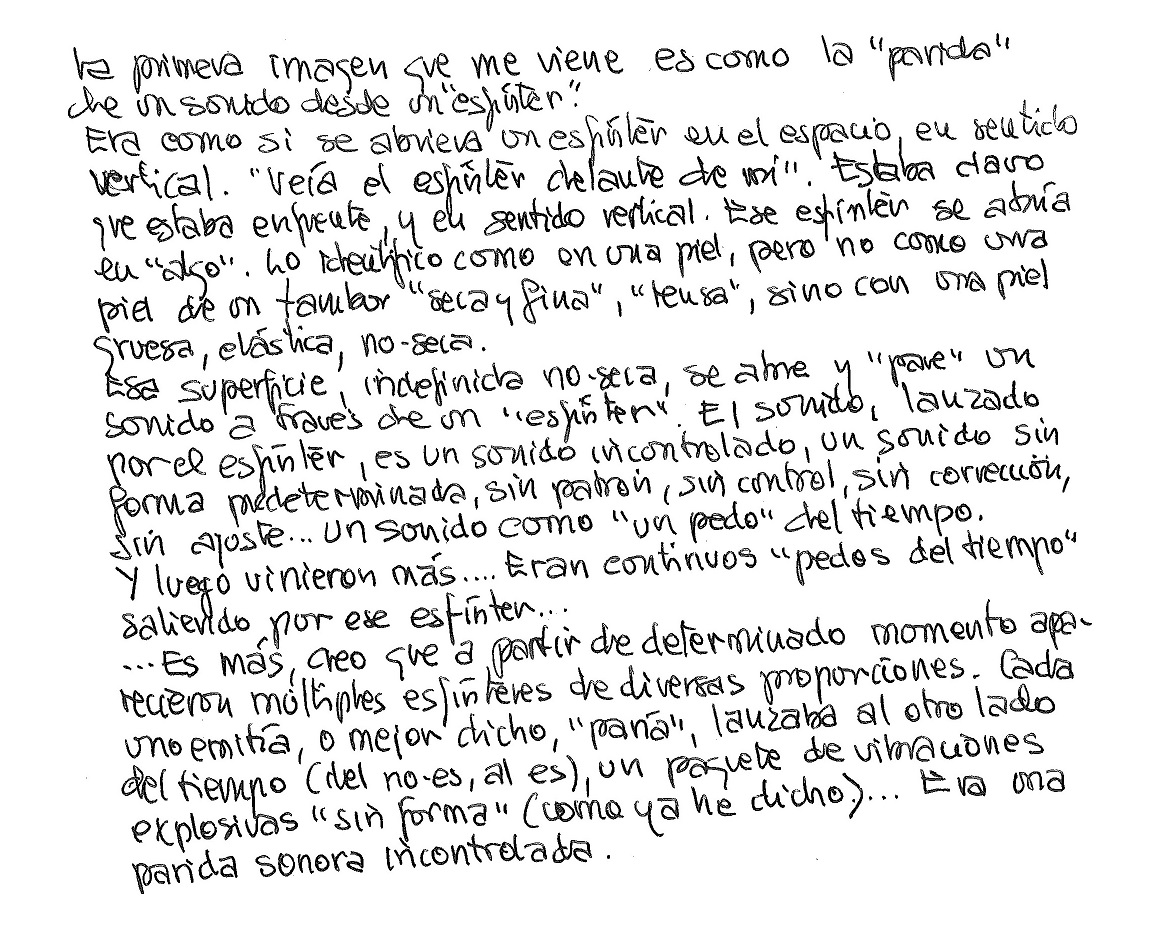 La primera imagen que me viene es como la "parida"
de un sonido desde un "esfínter".
Era como si se abriera un esfínter en el espacio, en sentido
vertical. "Veía el esfínter delante de mi". Estaba claro
que estaba enfrente, y en sentido vertical. Ese esfínter se abría
en "algo". Lo identifico como en una piel, pero no como una
piel de un tambor "seca y fina", "tensa", sino con una piel
gruesa, elástica, no-seca.
Esa superficie, indefinida no-seca, se abre y "pare" un
sonido a través de un "esfínter". El sonido, lanzado
por el esfínter, es un sonido incontrolado, un sonido sin
forma predeterminada, sin patrón, sin control, sin corrección,
sin ajuste... un sonido como "un pedo" del tiempo.
Y luego vinieron más.... Eran continuos "pedos del tiempo"
saliendo por ese esfínter...
...Es más, creo que a partir de determinado momento apa-
recieron múltiples esfínteres de diversas proporciones. Cada
uno emitía, o mejor dicho, "paría", lanzaba al otro lado
del tiempo (del no-es, al es), un paquete de vibraciones
explosivas "sin forma" (como ya he dicho)... Era una
parida sonora incontrolada.